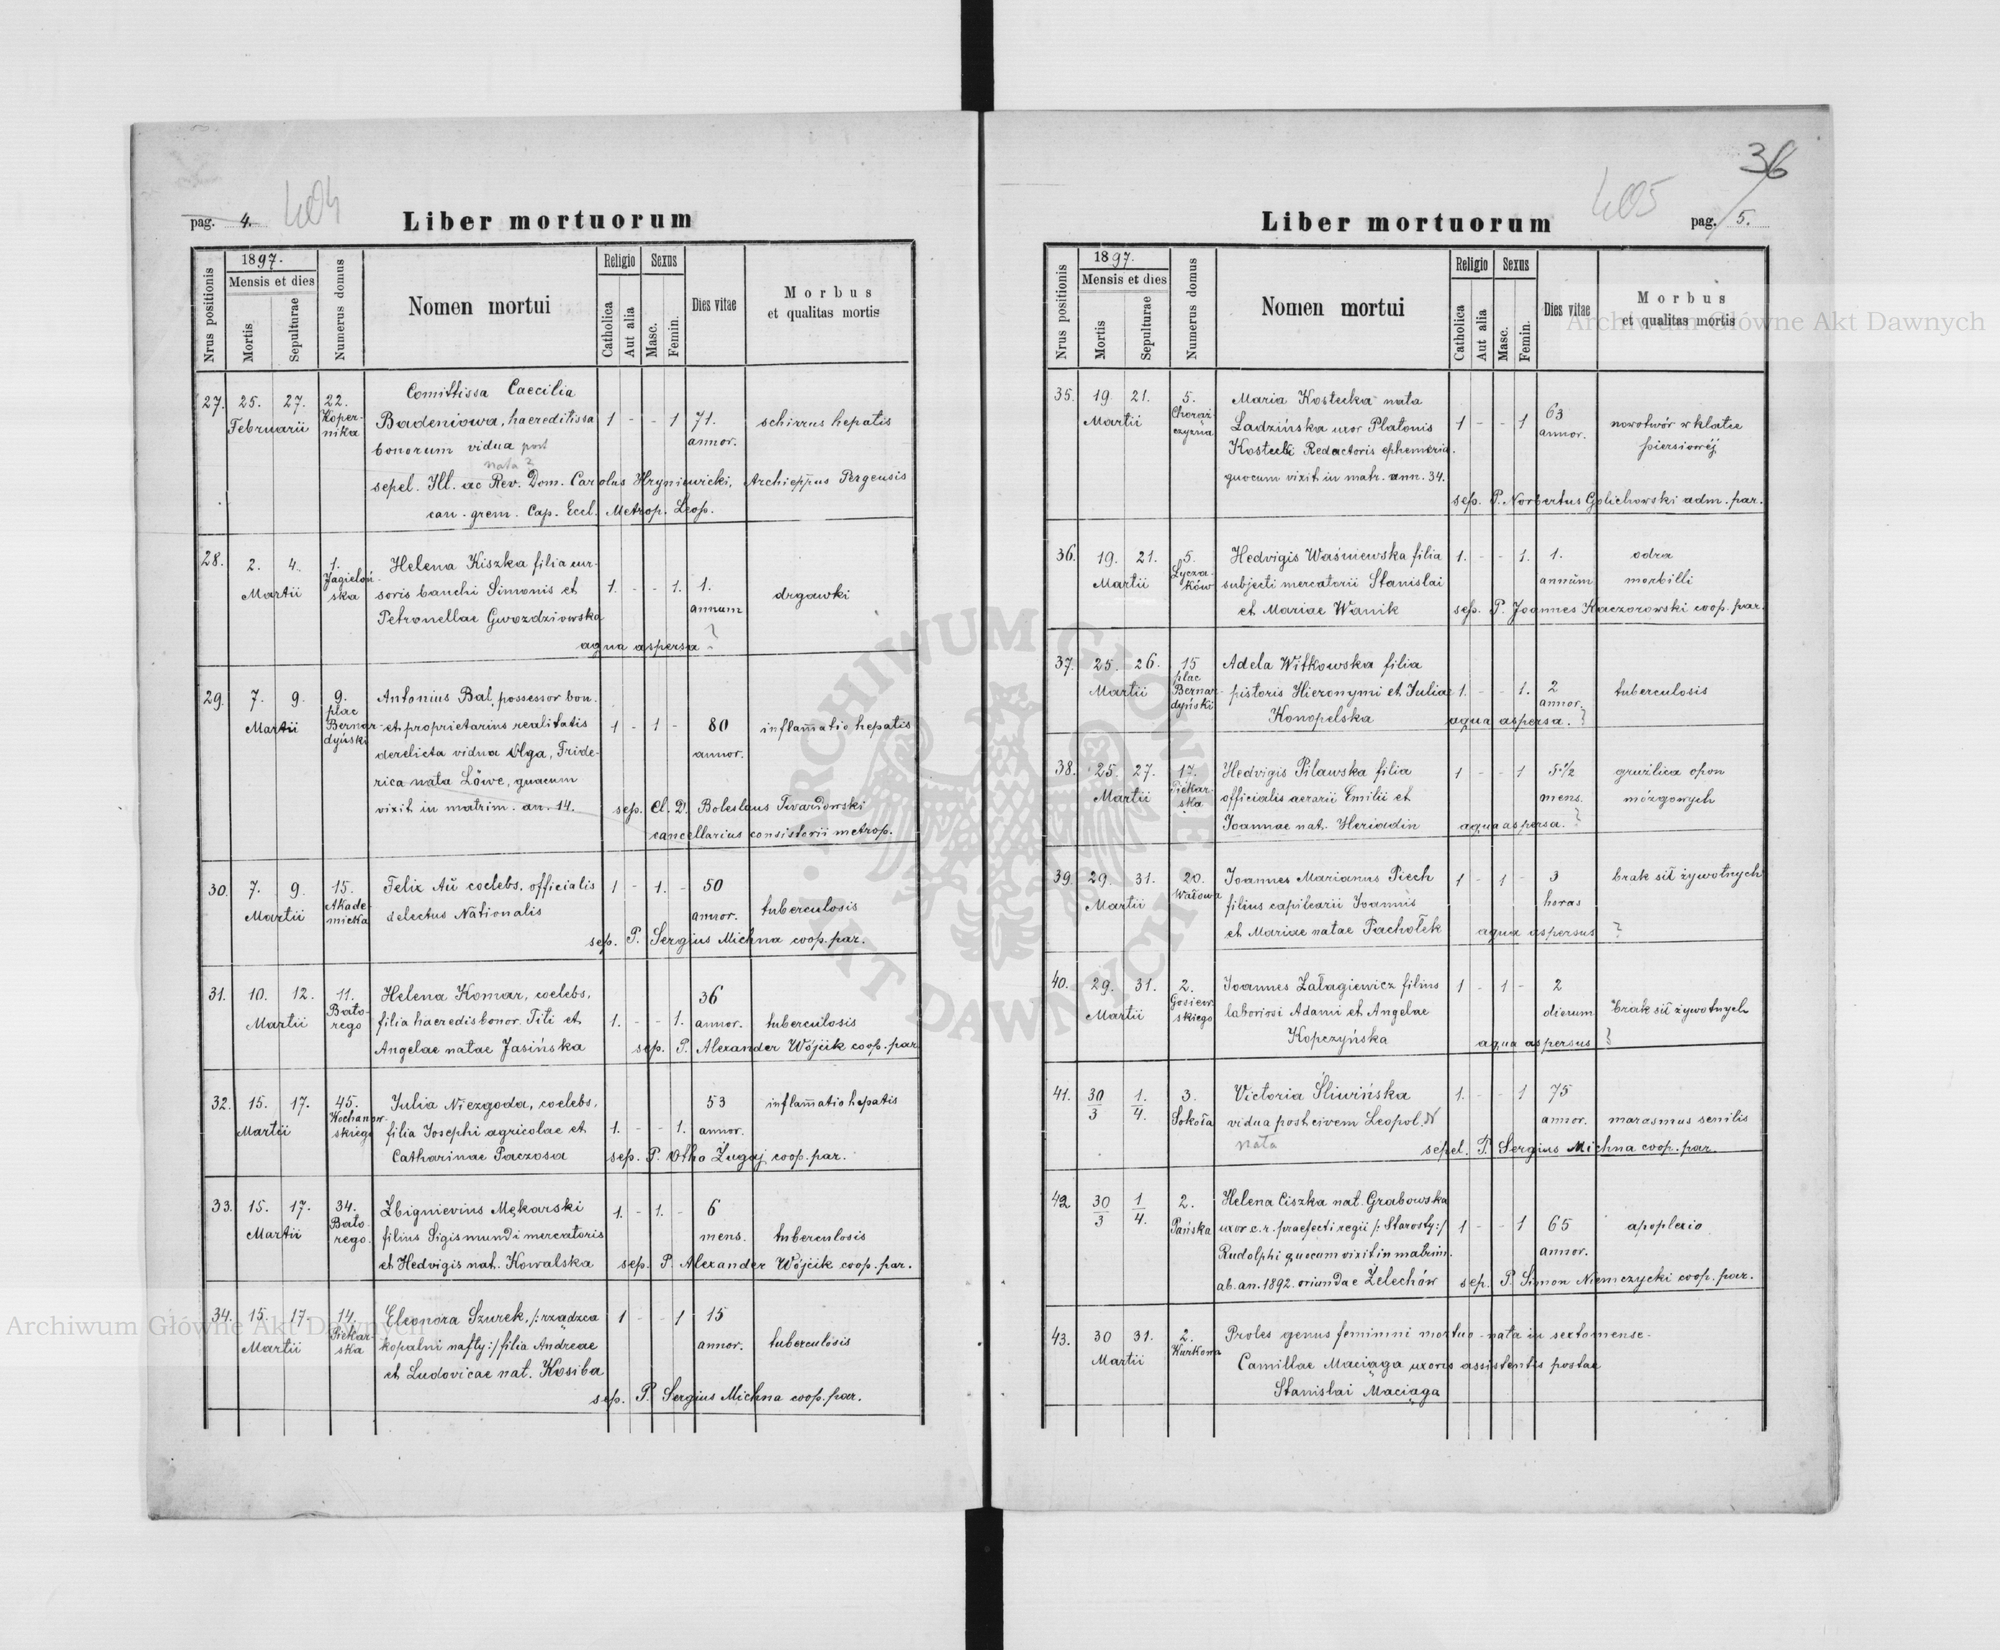 pag. 4. 404
Liber mortuorum
Nrus positionis
1897.
Mensis et dies
Mortis
Sepulturae
Numerus domus
Nomen mortui
Religio
Catholica
Aut alia
Sexus
Masc.
Femin.
Dies vitae
Morbus
et qualitas mortis
27. 25. 27. 22. Comittissa Caecilia
Februarii Koper- Badeniowa, haereditissa 1 - - 1 71. schirrus hepatis
nika bonorum vidua post annor.
nata?
sepel. Ill. ac Rev. Dom. Carolus Hryniewicki, Archieppus Pergensis
can. grem. Cap. Eccl. Metrop. Leop.
28. 2. 4. 1. Helena Kiszka filia cur-
Martii Jagieloń- soris banchi Simonis et 1. - - 1. 1. drgawki
ska Petronellae Gwozdziowska annum
aqua aspersa ?
29. 7. 9. 9. Antonius Bal, possessor bon.
Martii plac Bernar- et proprietarius realitatis 1 - 1 - 80 inflam̄atio hepatis
dyński derelicta vidua Olga, Fride- annor.
rica nata Löwe, quacum
vixit in matrim. an. 14. sep. Cl. D. Boleslaus Twardowski
cancellarius consistorii metrop.
30. 7. 9. 15. Felix Aŭ coelebs, officialis 1 - 1. - 50
Martii Akade- delectus Nationalis annor. tuberculosis
micka sep. P. Sergius Michna coop. par.
31. 10. 12. 11. Helena Komar, coelebs, 36
Martii Bato- filia haeredis bonor. Titi et 1. - - 1. annor. tuberculosis
rego Angelae natae Jasińska sep. P. Alexander Wójcik coop. par
32. 15. 17. 45. Julia Niezgoda, coelebs, 53 inflam̄atio hepatis
Martii Kochanow- filia Josephi agricolae et 1. - - 1. annor.
skiego Catharinae Paczosa sep. P. Otho Żugaj coop. par.
33. 15. 17. 34. Zbignievius Mękarski 1. - 1. - 6
Martii Bato- filius Sigismundi mercatoris mens. tuberculosis
rego. et Hedvigis nat. Kowalska sep. P. Alexander Wójcik coop. par.
34. 15. 17. 14. Eleonora Szurek, /: rządzca 1 - - 1 15
Martii Piekar- kopalni nafty :/ filia Andreae annor. tuberculosis
ska et Ludovicae nat. Kosiba
sep. P. Sergius Michna coop. par.
36
405 pag. 5.
Liber mortuorum
Nrus positionis
1897.
Mensis et dies
Mortis
Sepulturae
Numerus domus
Nomen mortui
Religio
Catholica
Aut alia
Sexus
Masc.
Femin.
Dies vitae
Morbus
et qualitas mortis
35. 19. 21. 5. Maria Kostecka nata
Martii Chorąż Ladzińska uxor Platonis 1 - - 1 63 nowotwór w klatce
czyzna Kostecki Redactoris ephemerid. annor. piersiowéj
quocum vixit in matr. ann. 34.
sep. P. Norbertus Golichowski adm. par.
36. 19. 21. 5. Hedvigis Waśniewska filia 1. - - 1. 1. odra
Martii Łycza- subjecti mercatorii Stanislai annum morbilli
ków et Mariae Wanik sep. P. Joannes Kaczorowski coop. par.
37. 25. 26. 15 Adela Witkowska filia
Martii plac Bernar- pistoris Hieronymi et Juliae 1. - - 1. 2 tuberculosis
dyński Konopelska annor.
aqua aspersa. ?
38. 25. 27. 17. Hedvigis Pilawska filia 1 - - 1 5 1/2 gruźlica opon
Martii Piekar- officialis aerarii Emilii et mens. mózgowych
ska Joannae nat. Heriadin aqua aspersa. ?
39. 29. 31. 20. Joannes Marianus Piech 1 - 1 - 3 brak sił żywotnych
Martii Wałowa filius capilearii Joannis horas
et Mariae natae Pachołek aqua aspersus ?
40. 29. 31. 2. Joannes Załagiewicz filius 1 - 1 - 2
Martii Gosiew- laboriosi Adami et Angelae dierum brak sił żywotnych
skiego Kopczyńska aqua aspersus ?
41. 30/3 1/4. 3. Victoria Śliwińska 1. - - 1 75
Sokoła vidua post civem Leopol. N annor. marasmus senilis
nata sepel. P. Sergius Michna coop. par.
42 30/3 1/4. 2. Helena Ciszka nat. Grabowska
Pańska uxor c. r. praefecti regii /: Starosty :/ 1 - - 1 65 apoplexio
Rudolphi quocum vixit in matrim. annor.
ab. an. 1892. oriundae Żelechów sep. P. Simon Niemczycki coop. par.
43. 30 31. 2. Proles genus feminini mortuo-nata in sexto mense.
Martii Kurkowa Camillae Maciąga uxoris assistentis postae
Stanislai Maciąga
Archiwum Główne Akt Dawnych
Archiwum Główne Akt Dawnych
ARCHIWUM GŁÓWNE AKT DAWNYCH